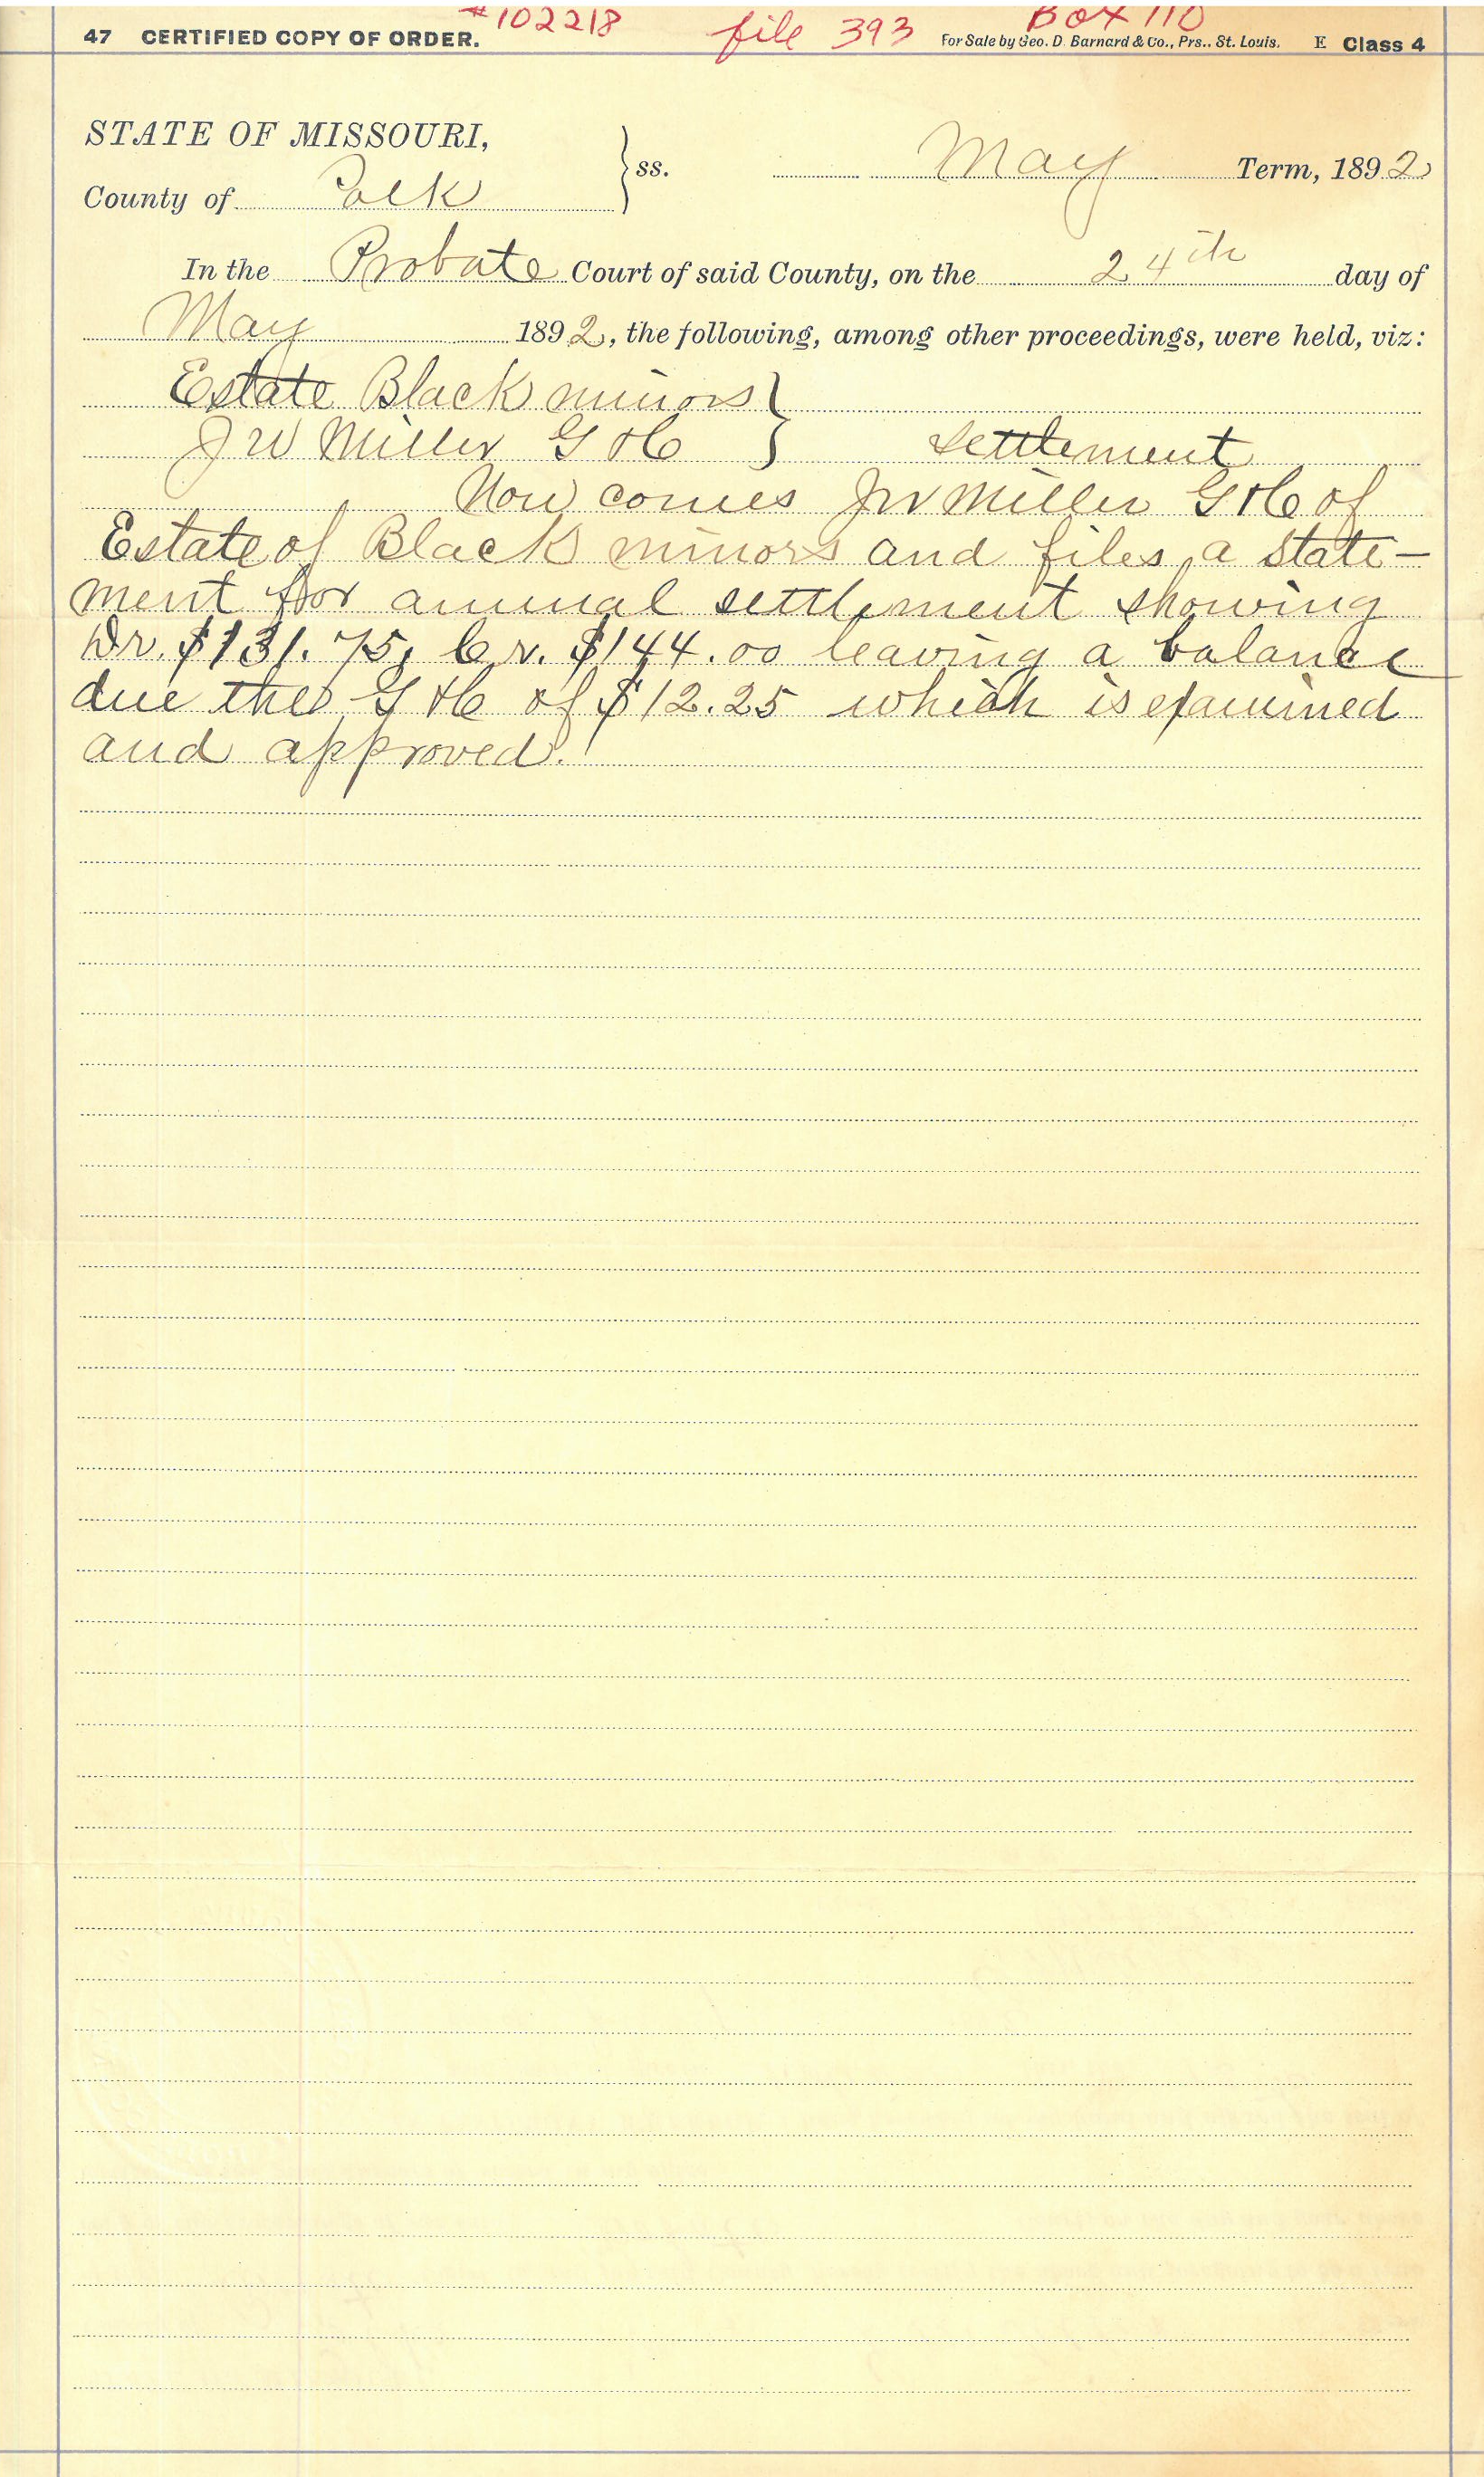 #102218 file 393 Box 110
47 CERTIFIED COPY OF ORDER. For Sale by Geo. D. Barnard & Co., Prs., St. Louis. E Class 4
STATE OF MISSOURI,
County of Polk } ss. May Term, 1892
In the Probate Court of said County, on the 24th day of
May 1892, the following, among other proceedings, were held, viz:
Estate Black minors }
J W Miller G & C } settlement
Now comes J W Miller G & C of
Estate of Black minors and files a state-
ment for annual settlement showing
Dr. $131.75, Cr. $144.00 leaving a balance
due the G & C of $12.25 which is examined
and approved.